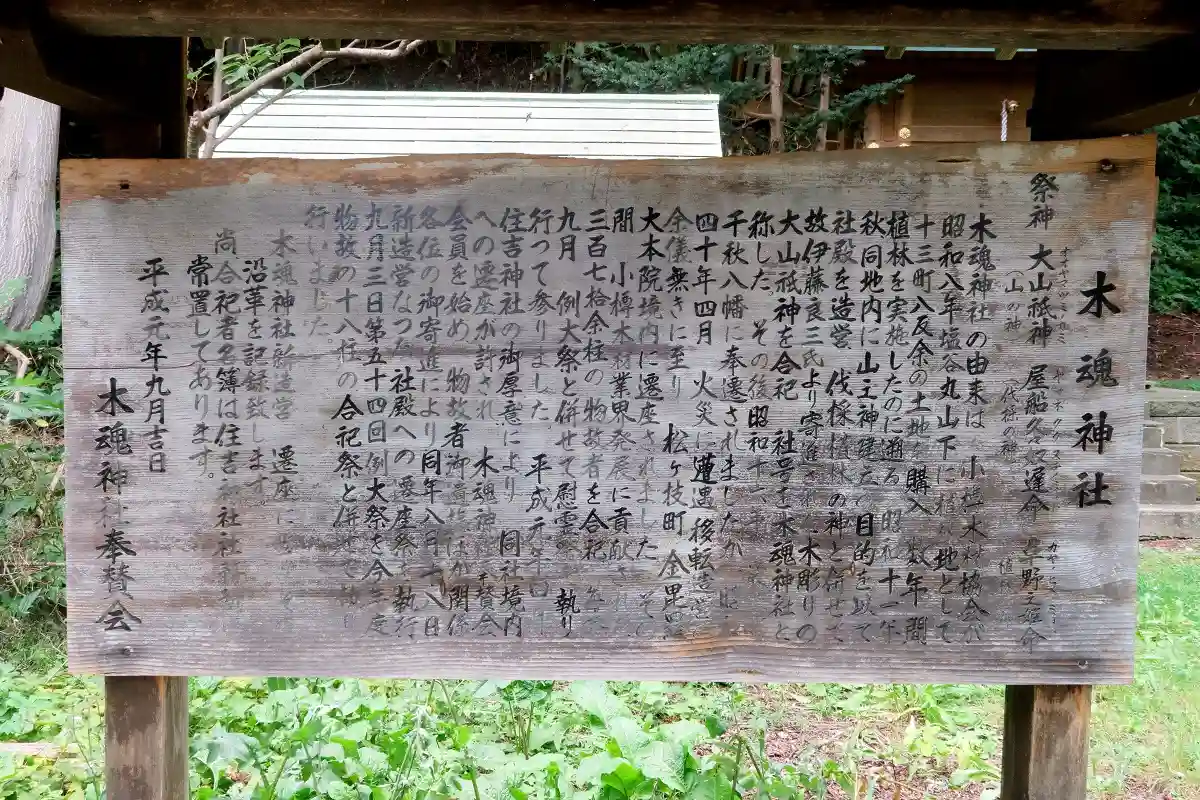 木魂神社
祭神 大山祇神 屋船久々奴遅命 草野之姫命
(山の神 代採の神 植
木魂神社の由来は 小樽木材協会が
昭和八年塩谷丸山下に植林地として
十三町八反余の土地を購入 数年間
植林を実施したのに遡る 昭和十一年
秋同地内に山王神建立の目的を以て
社殿を造営 伐採植林の神と併せて
故伊藤良三氏より寄進された木彫りの
大山祇神を合祀 社号を木魂神社と
称した。その後昭和十
千秋八幡に奉遷されましたが 昭
四十年四月 火災に遭遇移転を
余儀無きに至り 松ヶ枝町 金毘羅
大本院境内に遷座されました その
間 小樽木材業界発展に貢献され
三百七拾余柱の物故者を合祀 毎年
九月 例大祭と併せて慰霊 執り
行って参りました 平成元年四
住吉神社の御厚意により 同社境内
への遷座が計され 木魂神 奉賛会
会員を始め 物故者御遺族ほか関係
各位の御寄進により同年八月二八日
新造営なった社殿への遷座祭を執行
九月三日第五十四回例大祭を今年度
物故の十八柱の合祀祭と併せて執り
行いました。
木魂神社新造営 遷座に
沿革を記録致します。
尚合祀者名簿は住吉神社社
常置してあります。
平成元年九月吉日
木魂神社奉賛会